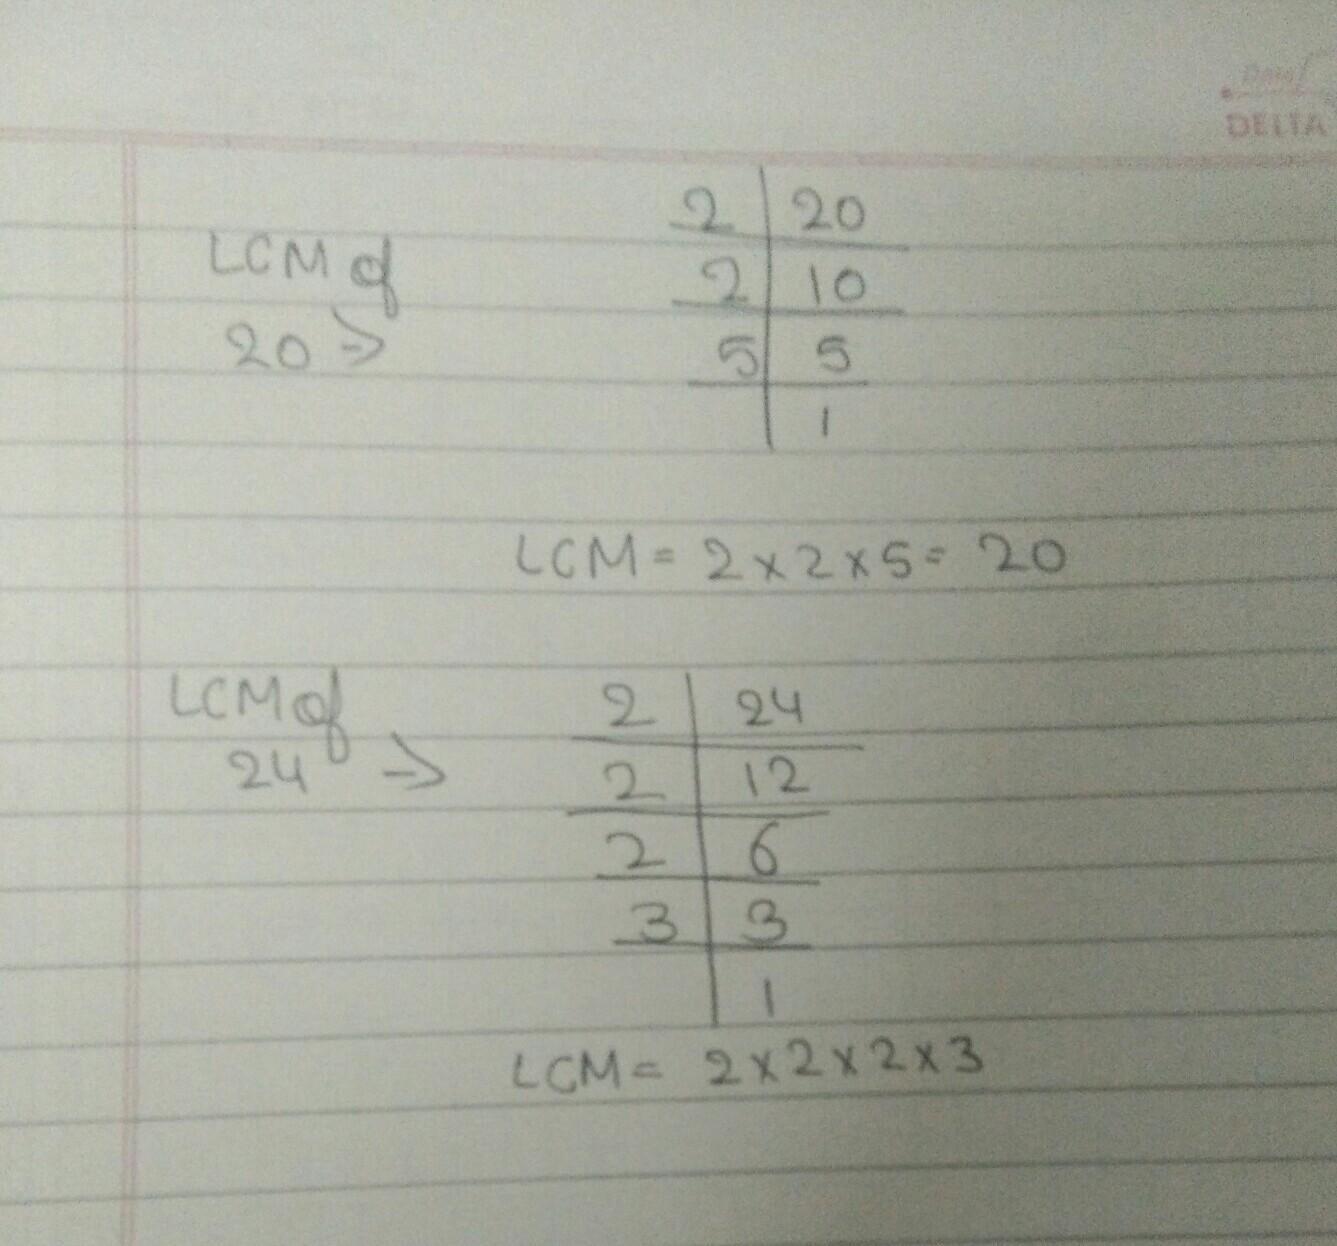 DELTA
2 | 20
LCM of
2 | 10
20 →
5 | 5
1
LCM = 2 x 2 x 5 = 20
LCM of
2 | 24
24 →
2 | 12
2 | 6
3 | 3
1
LCM = 2 x 2 x 2 x 3